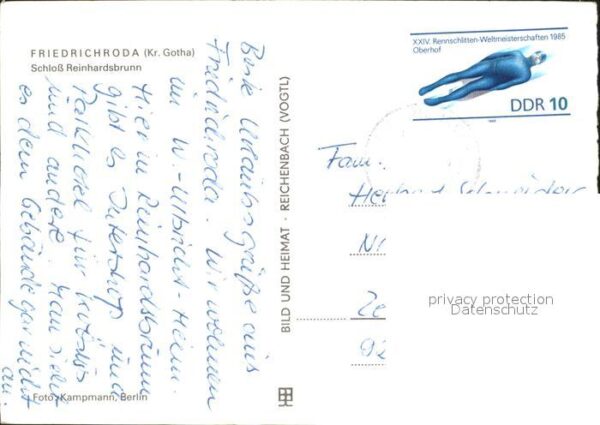 FRIEDRICHRODA (Kr. Gotha)
Schloß Reinhardsbrunn
Beste Urlaubsgrüße aus
Friedrichroda. Wir wohnen
im W.-Ulbricht-Heim.
Hier in Reinhardsbrunn
gibt es Intershop und
Parkhotel für
und andere. Man sieht
es dem Gebäude gar nicht
an.
Foto: Kampmann, Berlin
BILD UND HEIMAT · REICHENBACH (VOGTL)
XXIV. Rennschlitten-Weltmeisterschaften 1985
Oberhof
DDR 10
Fam.
privacy protection
Datenschutz